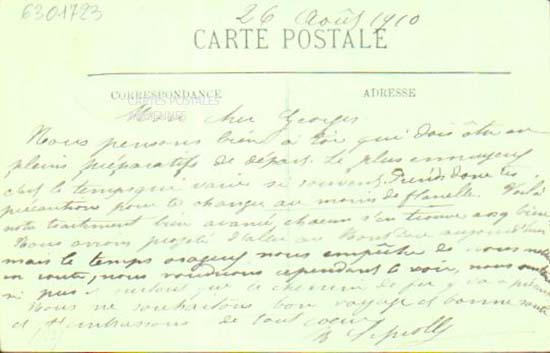 6301723
26 Août 1910
CARTE POSTALE
CORRESPONDANCE
ADRESSE
CARTES POSTALES
Mon cher Georges
Nous pensons bien à toi qui dois être en
pleins préparatifs de départ. Le plus ennuyeux
c'est le temps qui varie si souvent. Prends donc tes
précautions pour te changer au moins de flanelle. Voilà
notre traitement bien avancé chacun s'en trouve assez bien
Nous avions projeté d'aller au aujourd'hui
mais le temps orageux nous empêche de nous mettre
en route, nous voudrions cependant le voir, nous
ni pus surtout que ce chemin de fer y va à présent
Nous te souhaitons bon voyage et bonne santé
et t'embrassons de tout coeur